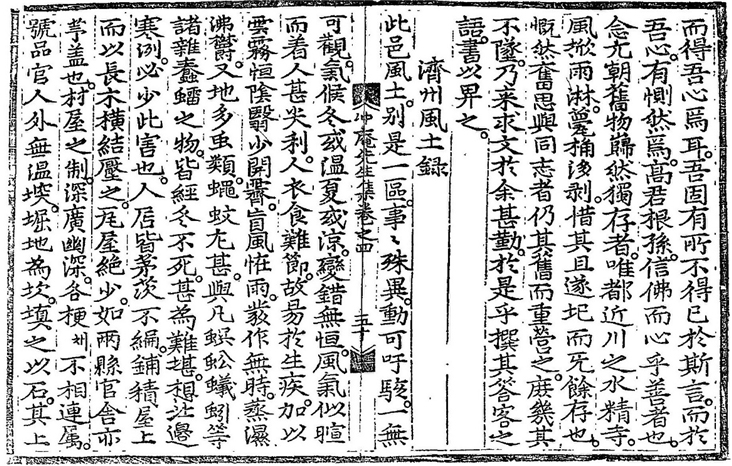 而得吾心焉耳。吾固有所不得已於斯言。而於
吾心有惻然焉。高君根孫。信佛而心乎善者也。
念元朝舊物巋然獨存者。唯都近川之水精寺。
風揿雨淋。甍桷浸剥。惜其且遂圮而旡餘存也。
慨然奮思與同志者仍其舊而重營之。庶幾其
不墜。乃來求文於余甚勤。於是乎撰其答客之
語。書以畀之。
濟州風土錄
此邑風土。別是一區。事〻殊異。動可吁駭。一無
冲庵先生集卷之四 三十
可觀。氣候冬或溫夏或涼。變錯無恒。風氣似暄
而着人甚尖利。人衣食難節。故易於生疾。加以
雲霧恒陰翳少開霽。盲風怪雨。發作無時。蒸濕
沸鬱。又地多虫類。蠅蚊尤甚。與凡蜈蚣蟻蚓等
諸雜蠢蠕之物。皆經冬不死。甚為難堪。想北邊
寒冽必少此害也。人居皆茅茨不編。鋪積屋上
而以長木橫結壓之。瓦屋絶少。如兩縣官舎亦
茅盖也。村屋之制。深廣幽深。各梗 不相連屬。
號品官人外無溫堗。掘地為坎。塡之以石。其上